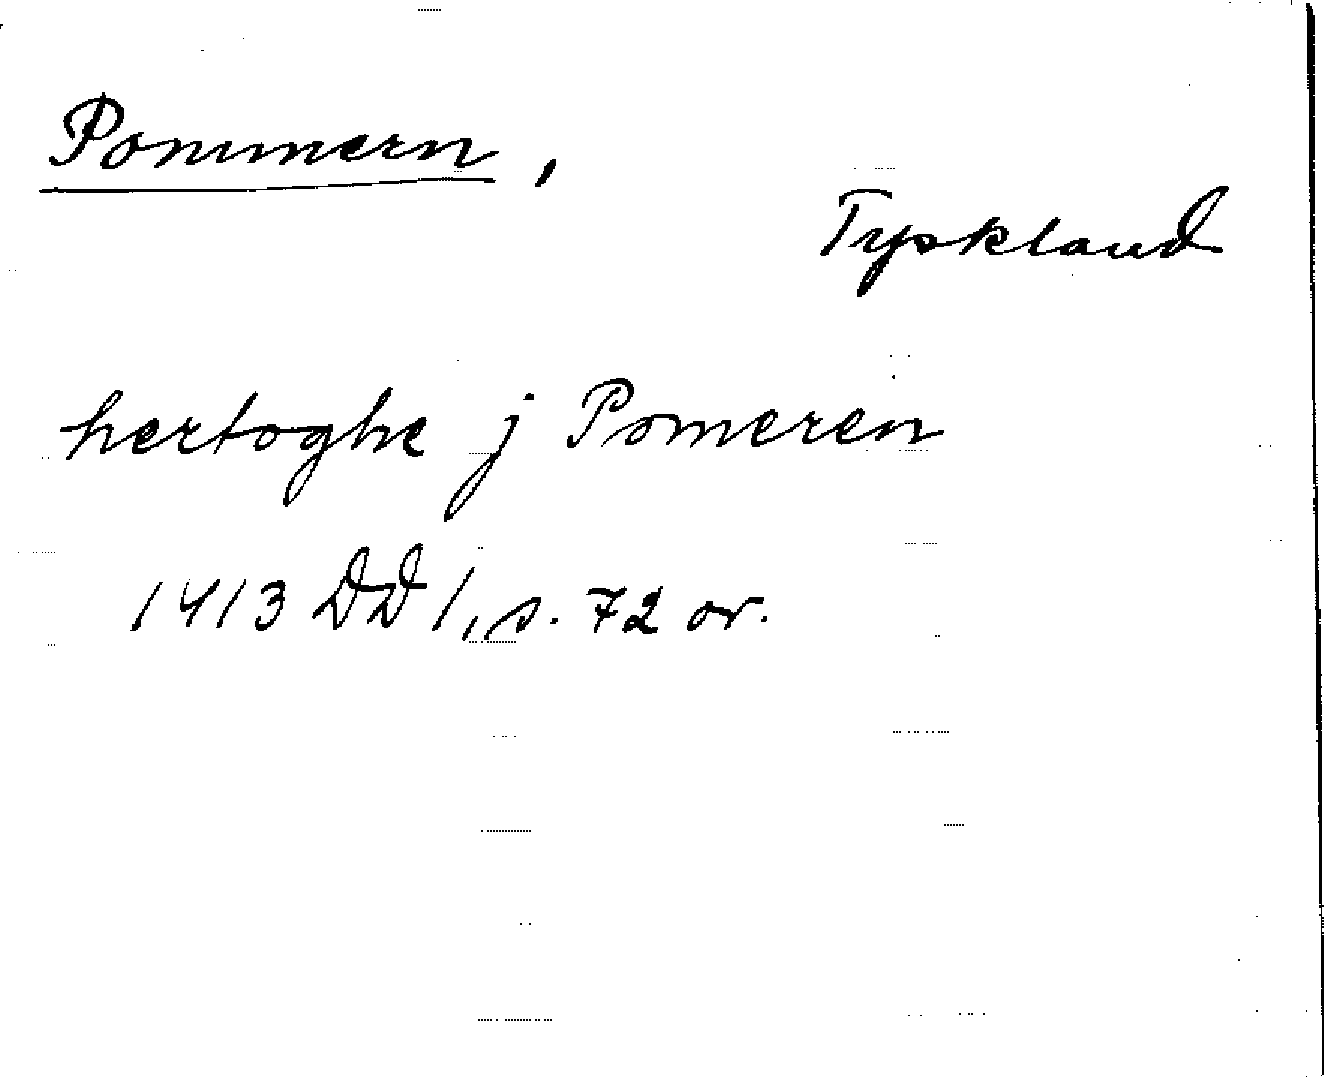 Pommern,
Tyskland
hertoghe j Pomeren
1413 DD 1, s. 72 or.